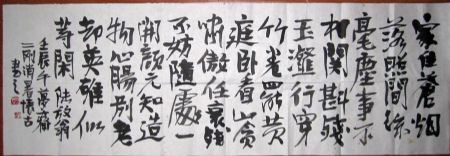 家住蒼烟
落照間絲
毫塵事不
相關斟殘
玉瀣行穿
竹卷罷黄
庭卧看山貪
嘯傲任衰殘
不妨隨處一
開顏元知造
物心腸别老
却英雄似
等閑 陸放翁
壬辰